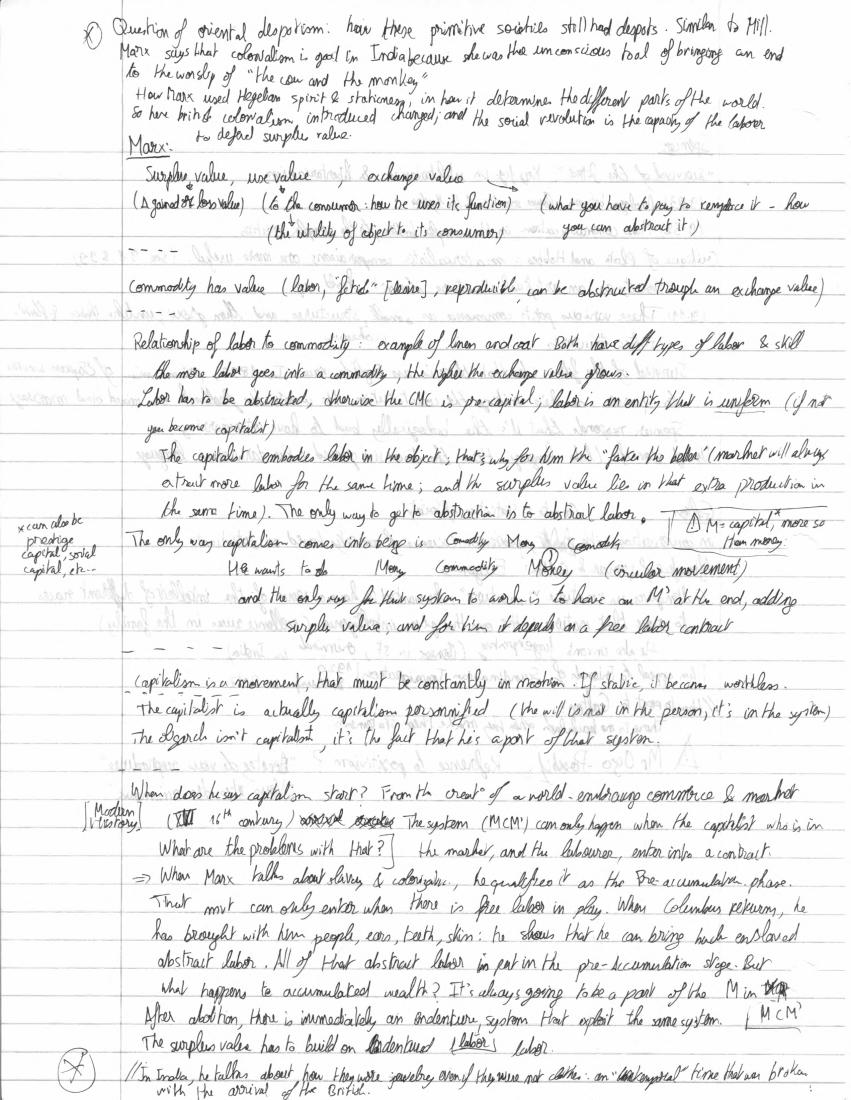 Question of oriental despotism: how these primitive societies still had despots. Similar to Mill.
Marx says that colonialism is good in India because she was the unconscious tool of bringing an end
to the worship of "the cow and the monkey"
How Marx used Hegelian spirit & stationess, in how it determines the different parts of the world.
So here british colonialism introduced changed, and the social revolution is the capacity of the laborer
to defend surplus value.
Marx:
Surplus value, use value, exchange value
(Δ gained or loss value) (to the consumer: how he uses its function) (what you have to pay to remplace it - how
(the utility of object to its consumer) you can abstract it.)
----
Commodity has value (labor, "fetish" [desire], reproducible, can be abstracted trough an exchange value)
----
Relationship of labor to commodity: example of linen and coat. Both have diff types of labor & skill
the more labor goes into a commodity, the higher the exchange value grows.
Labor has to be abstracted, otherwise the CMC is pre-capital; labor is an entity that is uniform (if not
you become capitalist)
The capitalist embodies labor in the object; that's why for him the "faster the better" (market will always
extract more labor for the same time; and the surplus value lies in that extra production in
the same time). The only way to get to abstraction is to abstract labor.
⚠ M = capital,* more so
than money.
*can also be
prestige
capital, social
capital, etc...
The only way capitalism comes into being is Comodity Mony Comodity
He wants to do Mony Commodity Money (circular movement)
and the only way for that system to work is to have an M' at the end, adding
surplus value; and for him it depends on a free labor contract
----
Capitalism is a movement, that must be constantly in mootion. If static, it becomes worthless.
The capitalist is actually capitalism personnified (the will is not in the person, it's in the system)
The oligarch isn't capitalist, it's the fact that he's a part of that system.
----
When does he say capitalism start? From the creat° of a world-embracing commerce & market
[Modern History] (16th century) The system (MCM') can only happen when the capitalist who is in
What are the problems with that?] the market, and the labourer, enter into a contract.
⇒ When Marx talks about slavery & colonization, he qualifies it as the Pre-accumulation phase.
That mvt can only enter when there is free labor in play. When Columbus returns, he
has brought with him people, ears, teeth, skin: he shows that he can bring back enslaved
abstract labor. All of that abstract labor is put in the pre-accumulation stage. But
what happens to accumulated wealth? It's always going to be a part of the M in
MCM'
After abolition, there is immediately an endenture system that exploit the same system.
The surplus value has to build on indentured labor.
//In India, he talks about how they wore jewelry even if they were not clothes: an time that was broken
with the arrival of the British.